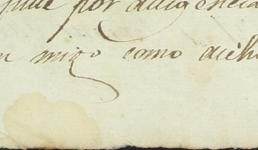 por diligencia
migo como dicho